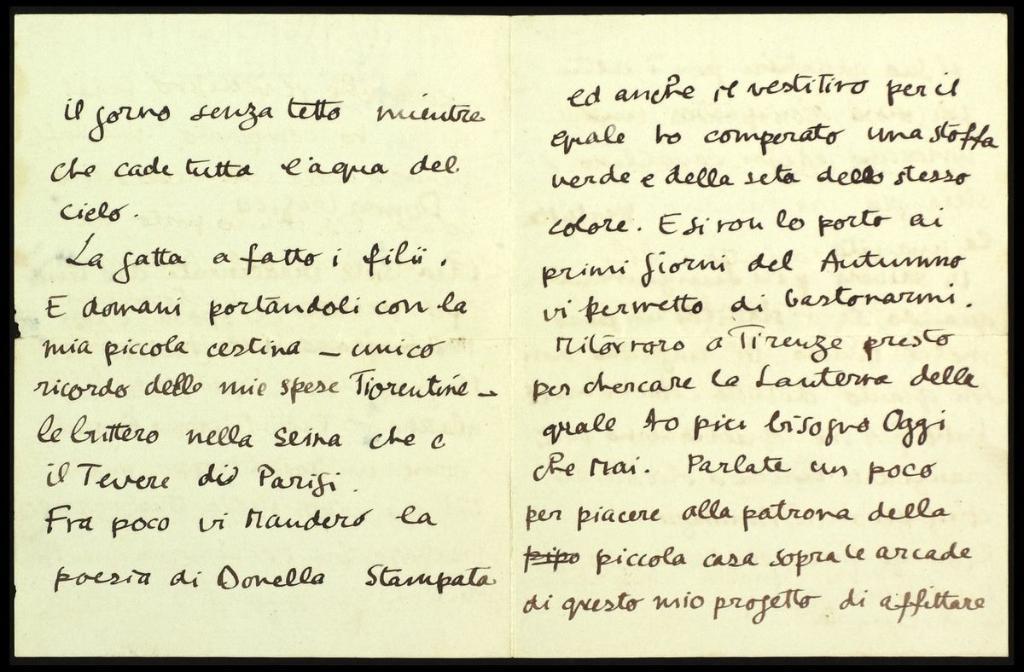 il gorno senza tetto mientre
che cade tutta l'aqua del
cielo.
La gatta a fatto i filii.
E domani portandoli con la
mia piccola cestina – unico
ricordo delle mie spese Fiorentine –
le buttero nella Seina che e
il Tevere di Parigi.
Fra poco vi mandero la
poesia di Donella Stampata
ed anche il vestitino per il
quale ho comperato una stoffa
verde e della seta dello stesso
colore. E si non lo porto ai
primi giorni del Autumno
vi permetto di bastonarmi.
Ritornaro a Firenze presto
per chercare la Lanterna delle
quale ho piu bisogno Oggi
che mai. Parlate un poco
per piacere alla patrona della
pipo piccola casa sopra le arcade
di questo mio progetto di affittare